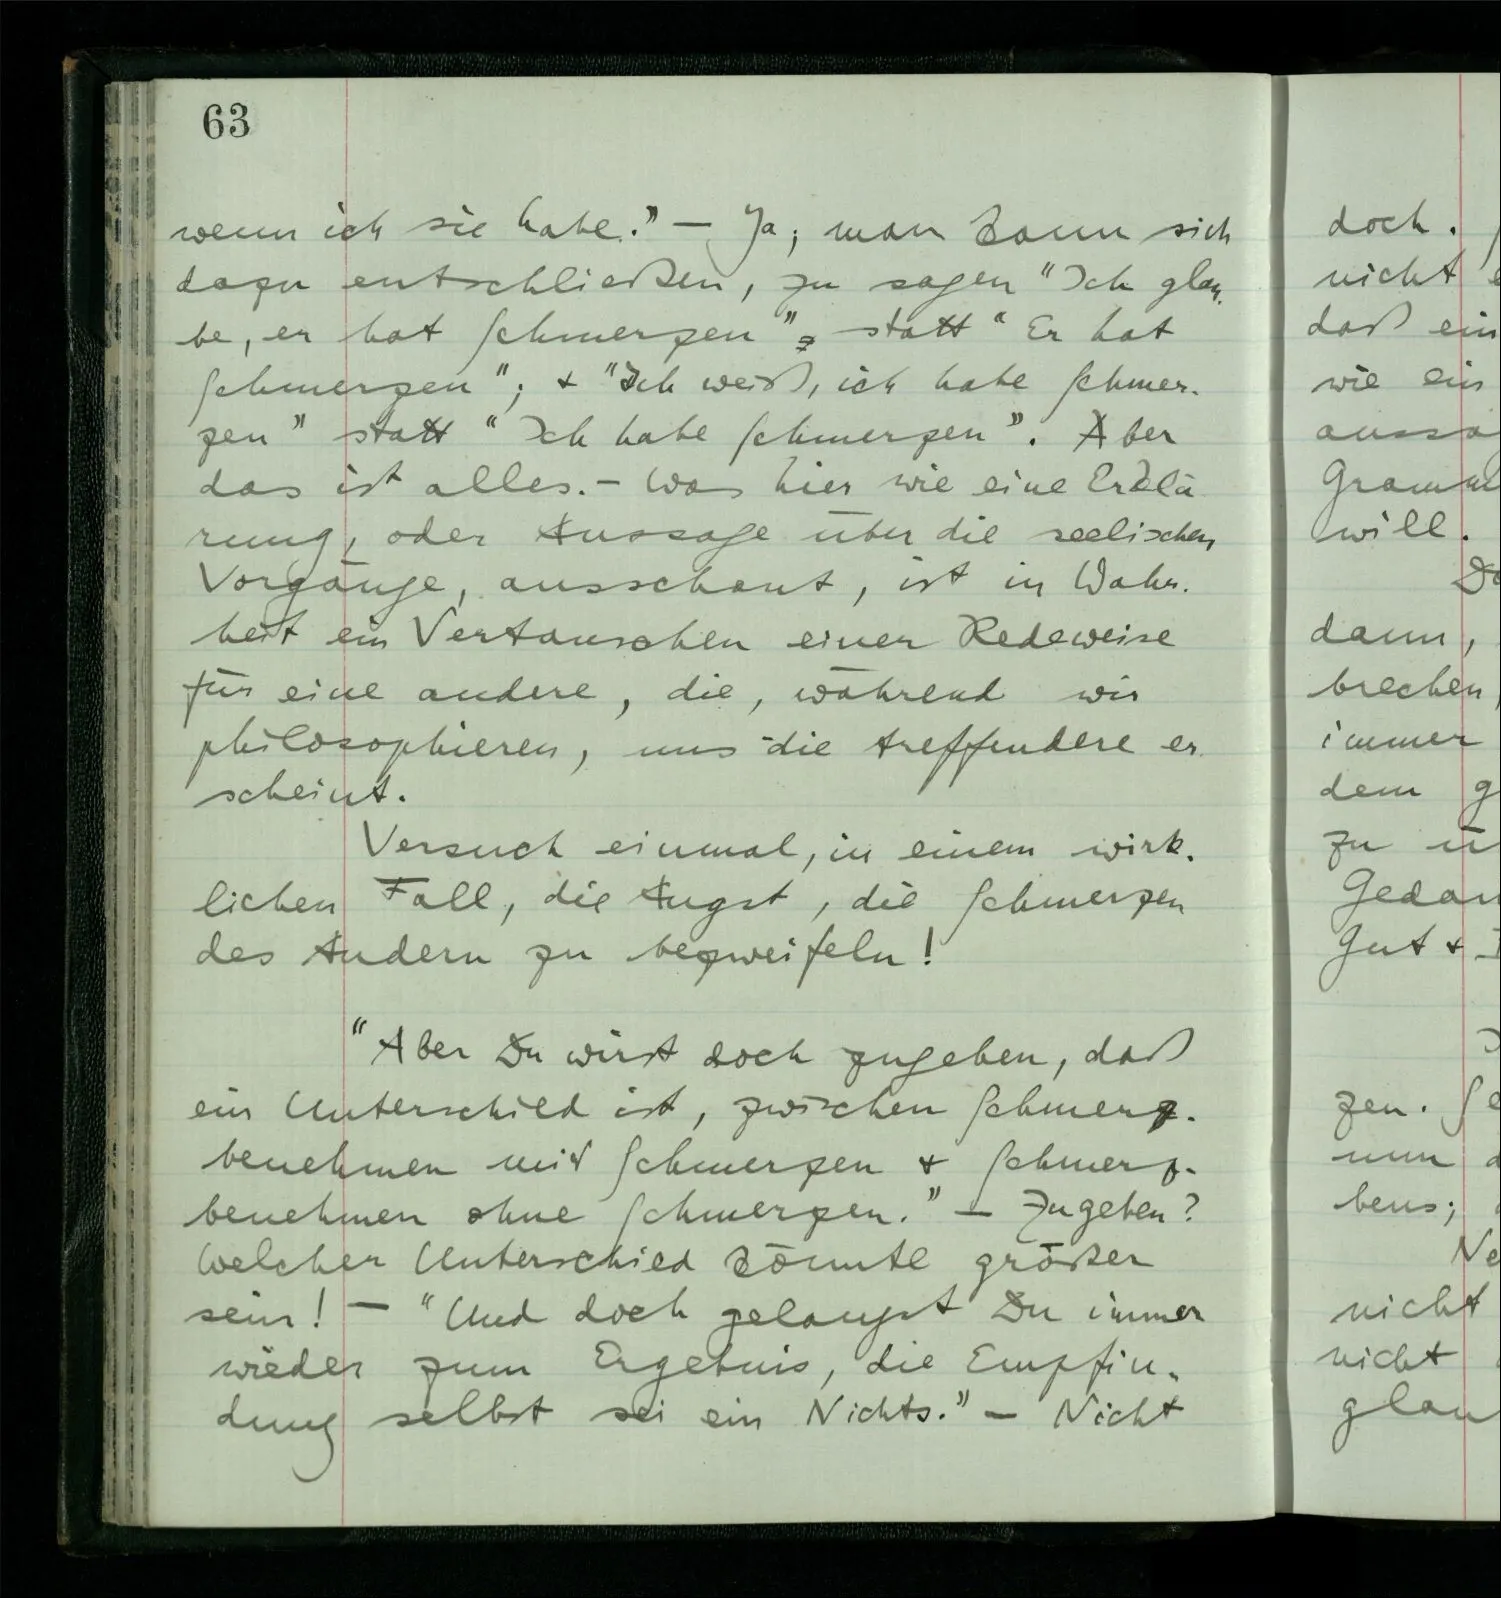 63
wenn ich sie habe." — Ja; man kann sich
dazu entschließen, zu sagen "Ich glau-
be, er hat Schmerzen", statt "Er hat
Schmerzen"; & "Ich weiß, ich habe Schmer-
zen" statt "Ich habe Schmerzen". Aber
das ist alles. – Was hier wie eine Erklä-
rung, oder Aussage über die seelischen
Vorgänge, ausschaut, ist in Wahr-
heit ein Vertauschen einer Redeweise
für eine andere, die, während wir
philosophieren, uns die treffendere er-
scheint.
Versuch einmal, in einem wirk-
lichen Fall, die Angst, die Schmerzen
des Andern zu bezweifeln!
"Aber Du wirst doch zugeben, daß
ein Unterschied ist, zwischen Schmerz-
benehmen mit Schmerzen & Schmerz-
benehmen ohne Schmerzen." — Zugeben?
Welcher Unterschied könnte größer
sein! — "Und doch gelangst Du immer
wieder zum Ergebnis, die Empfin-
dung selbst sei ein Nichts." – Nicht
doch.
nicht
daß ein
wie ein
aussa
Gramm
will.
Da
dann,
brechen,
immer
dem g
zu ü
Gedan
Gut &
zen. Se
nun d
bens;
Ne
nicht
nicht
glau